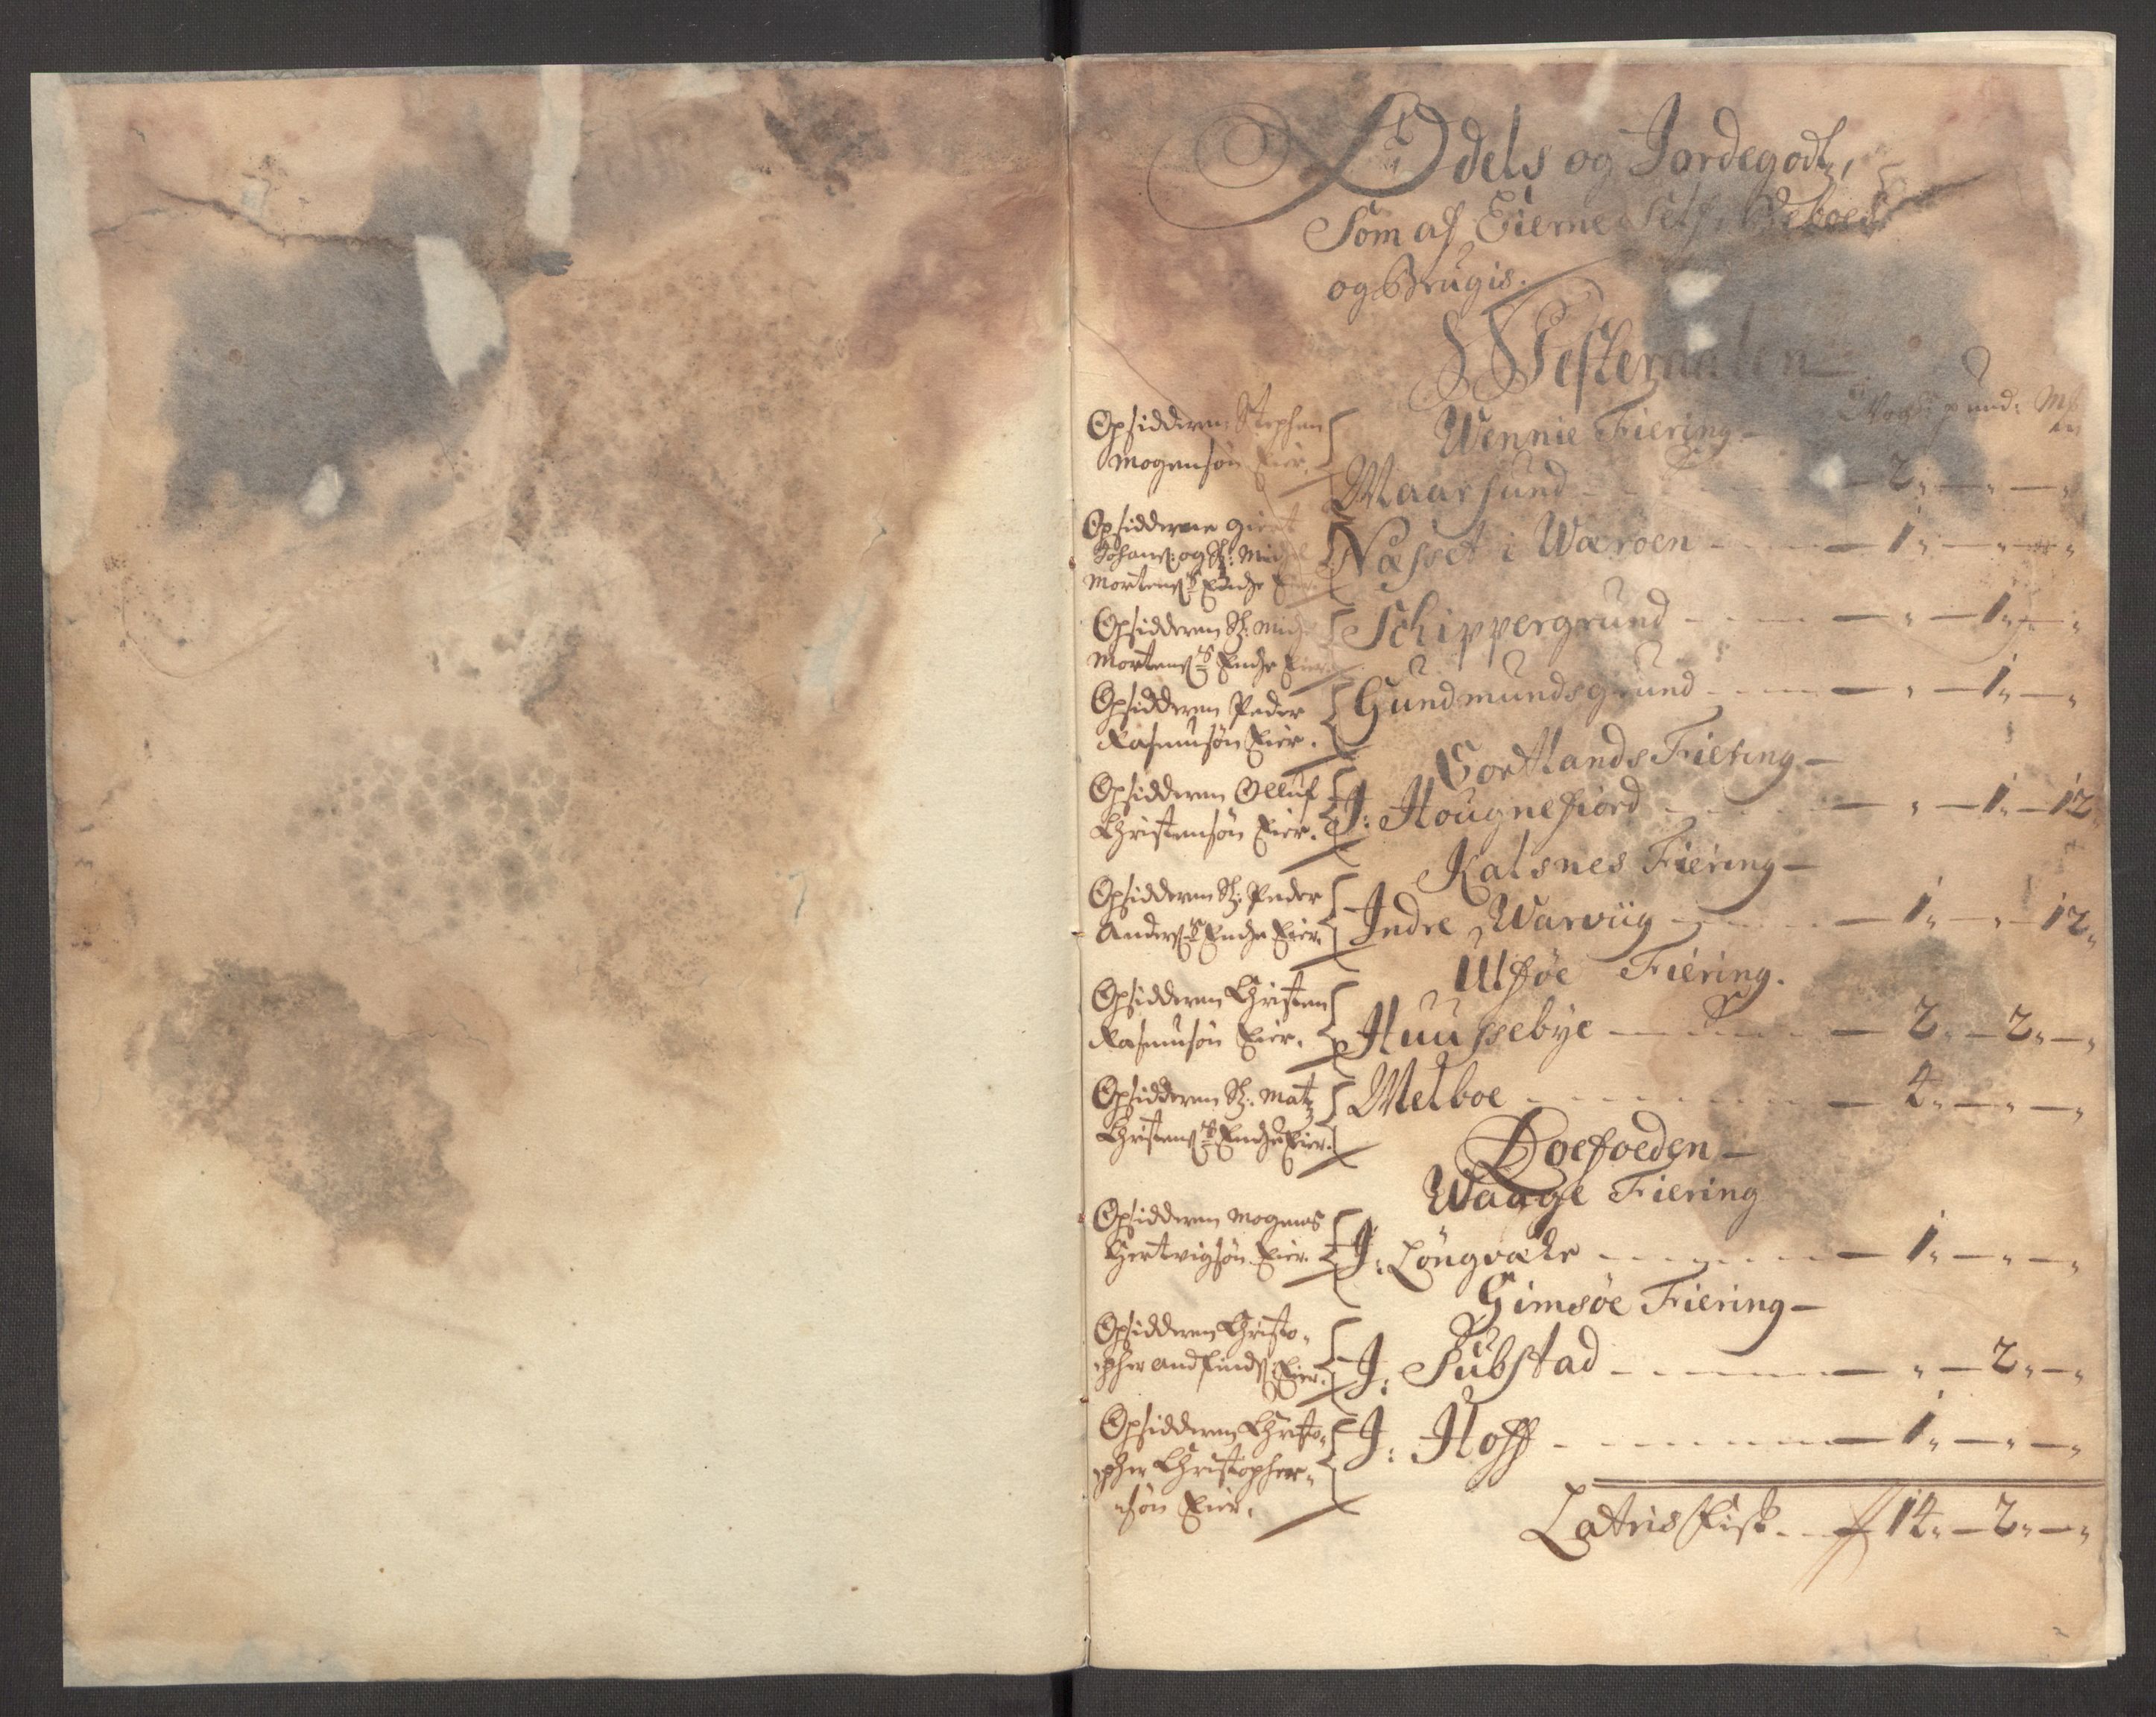 Odels og Jordegodtz,
Som af Eierne self, Beboes
og Brugis.
Westeraalen
Wog: pund: Mk
Opsidderen Stephen
Mogensøn Eier.
Wennie Fiering
Maarsund - 2 " - " - "
Opsidderne Giert
Johans: og Sl: Mich
Mortens Encke Eier
Næsset i Wæröen - 1 " - " - "
Opsidderen Sl: Mich
Mortens Encke Eier
Schippergrund - " - 1 " - "
Opsidderen Peder
Rasmusøn Eier.
Gundmundsgrund - " - 1 " - "
Sortlands Fiering
Opsidderen Olluf
Christensøn Eier.
J: Hougnefiord - " - 1 - 12 "
Kalsnes Fiering
Opsidderen Sl: Peder
Anders Encke Eier.
Indre Warviig - 1 " - " - 12 "
Ulføe Fiering.
Opsidderen Christen
Rasmusøn Eier.
Huussebye - 2 " - 2 " - "
Opsidderen Sl: Matz
Christens Encke Eier.
Melboe - 4 " - " - "
Loefoeden
Waage Fiering
Opsidderen Mogens
Hertvigsøn Eier.
J: Longvake - 1 " - " - "
Gimsøe Fiering
Opsidderen Christo-
pher Andfinds: Eier.
J: Substad - " - 2 " - "
Opsidderen Christo-
pher Christopher-
søn Eier.
J: Hoff - 1 " - " - "
Lateris Fisk - 14 " - 2 " - "